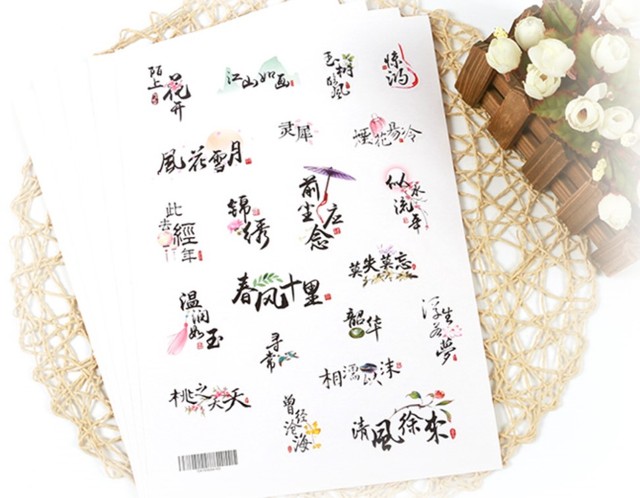 陌上花开
江山如画
玉树临风
惊鸿
灵犀
烟花易冷
風花雪月
前尘念
似水流年
此去經年
锦绣
莫失莫忘
春风十里
温润如玉
韶华
浮生若夢
寻常
相濡以沫
桃之夭夭
曾经沧海
清風徐來